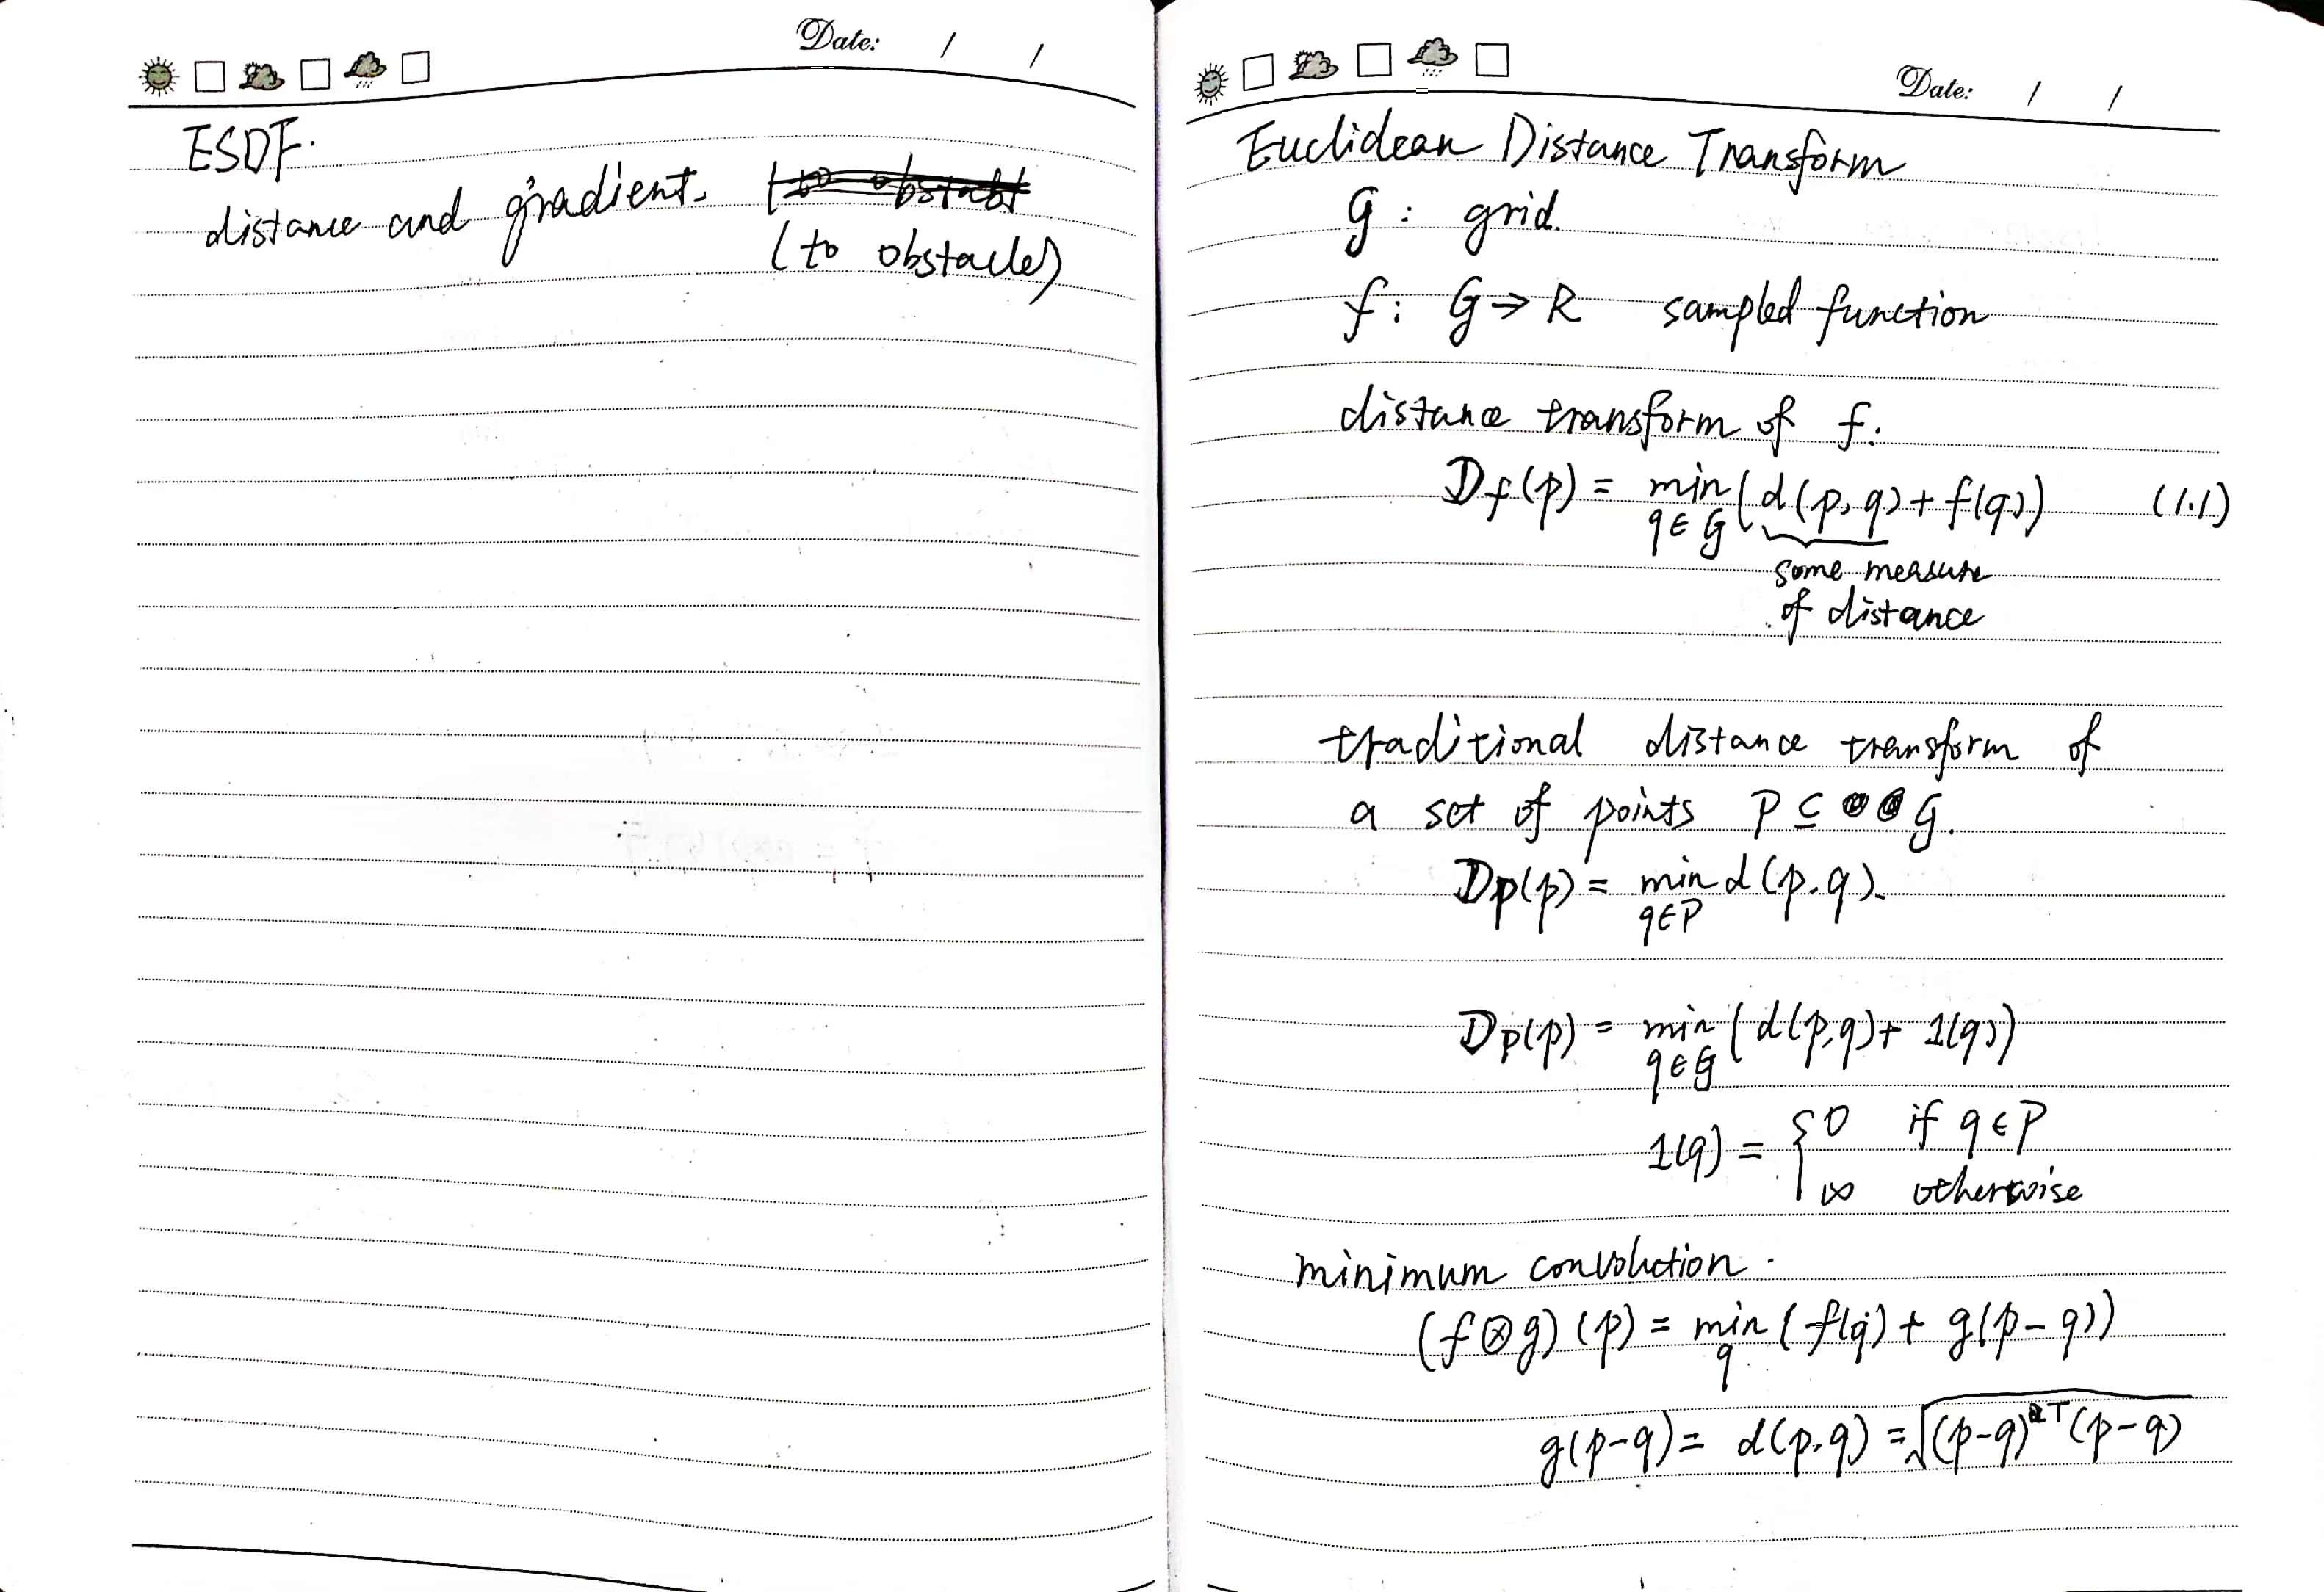 Date: / /
ESDF.
distance and gradient.
(to obstacle)
Date: / /
Euclidean Distance Transform
G : grid.
f : G → R sampled function
distance transform of f.
D_f(p) = min_{q∈G} (d(p,q) + f(q)) (1.1)
some measure
of distance
traditional distance transform of
a set of points P ⊆ G.
D_P(p) = min_{q∈P} d(p,q).
D_P(p) = min_{q∈G} (d(p,q) + 1(q))
1(q) = { 0 if q ∈ P
∞ otherwise
minimum convolution.
(f ⊗ g)(p) = min_q (f(q) + g(p-q))
g(p-q) = d(p,q) = √(p-q)^T(p-q)